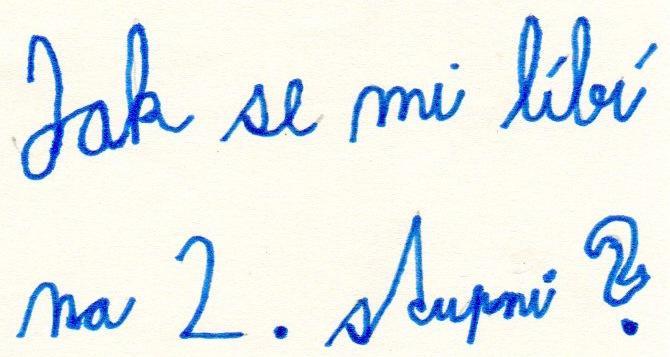 Jak se mi líbí
na 2. stupni?